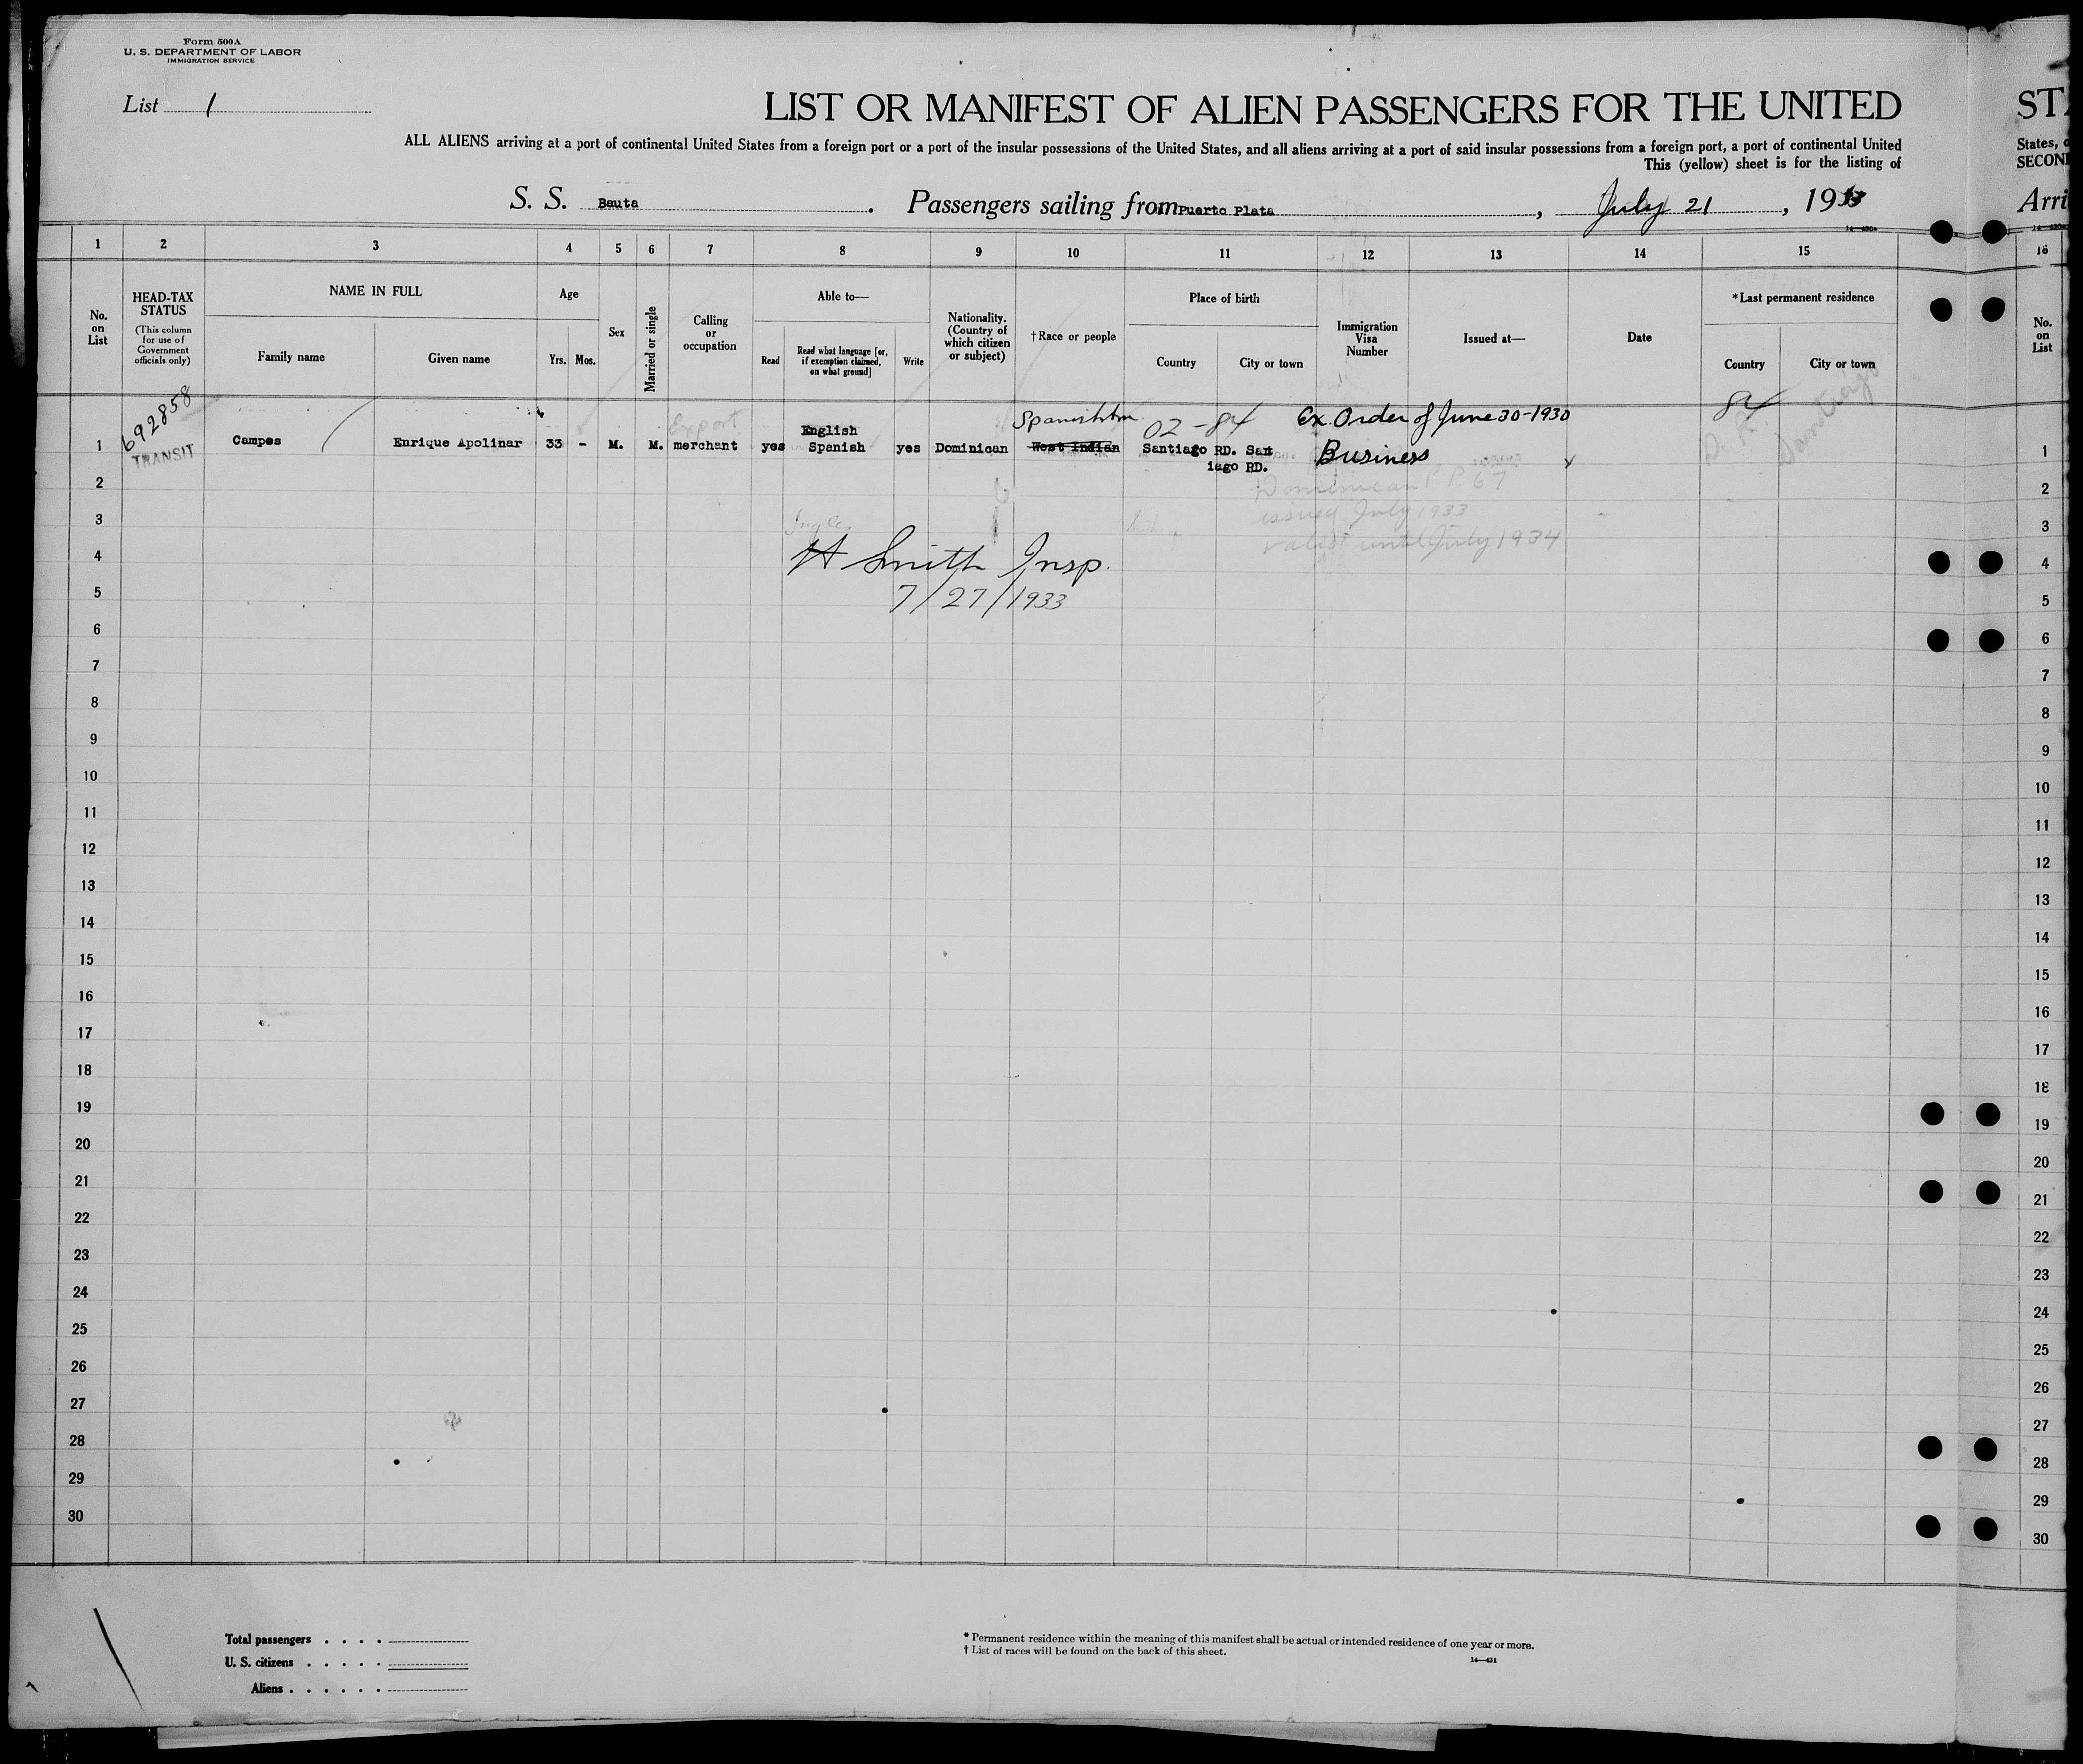 Form 500A
U. S. DEPARTMENT OF LABOR
IMMIGRATION SERVICE
List 1
LIST OR MANIFEST OF ALIEN PASSENGERS FOR THE UNITED
ALL ALIENS arriving at a port of continental United States from a foreign port or a port of the insular possessions of the United States, and all aliens arriving at a port of said insular possessions from a foreign port, a port of continental United
This (yellow) sheet is for the listing of
S. S. Bauta. Passengers sailing from Puerto Plata, July 21, 1933
STA
States, o
SECOND
Arri
1 2 3 4 5 6 7 8 9 10 11 12 13 14 15 16
No. on List
HEAD-TAX STATUS
(This column for use of Government officials only)
NAME IN FULL
Family name
Given name
Age
Yrs. Mos.
Sex
Married or single
Calling or occupation
Able to—
Read
Read what language [or, if exemption claimed, on what ground]
Write
Nationality. (Country of which citizen or subject)
†Race or people
Place of birth
Country
City or town
Immigration Visa Number
Issued at—
Date
*Last permanent residence
Country
City or town
No. on List
692858
TRANSIT
Export
English
Spanish Am
02-84
Ex. Order of June 30-1930
84
1 Campos Enrique Apolinar 33 - M. M. merchant yes Spanish yes Dominican West Indian Santiago RD. Sant Business 1
iago RD.
2 Dominican P.P. 67 2
3 issued July 1933 3
4 valid until July 1934 4
H Smith Insp.
5 7/27/1933 5
6 6
7 7
8 8
9 9
10 10
11 11
12 12
13 13
14 14
15 15
16 16
17 17
18 18
19 19
20 20
21 21
22 22
23 23
24 24
25 25
26 26
27 27
28 28
29 29
30 30
Total passengers . . . .
U. S. citizens . . . . .
Aliens . . . . . .
* Permanent residence within the meaning of this manifest shall be actual or intended residence of one year or more.
† List of races will be found on the back of this sheet.
14—431